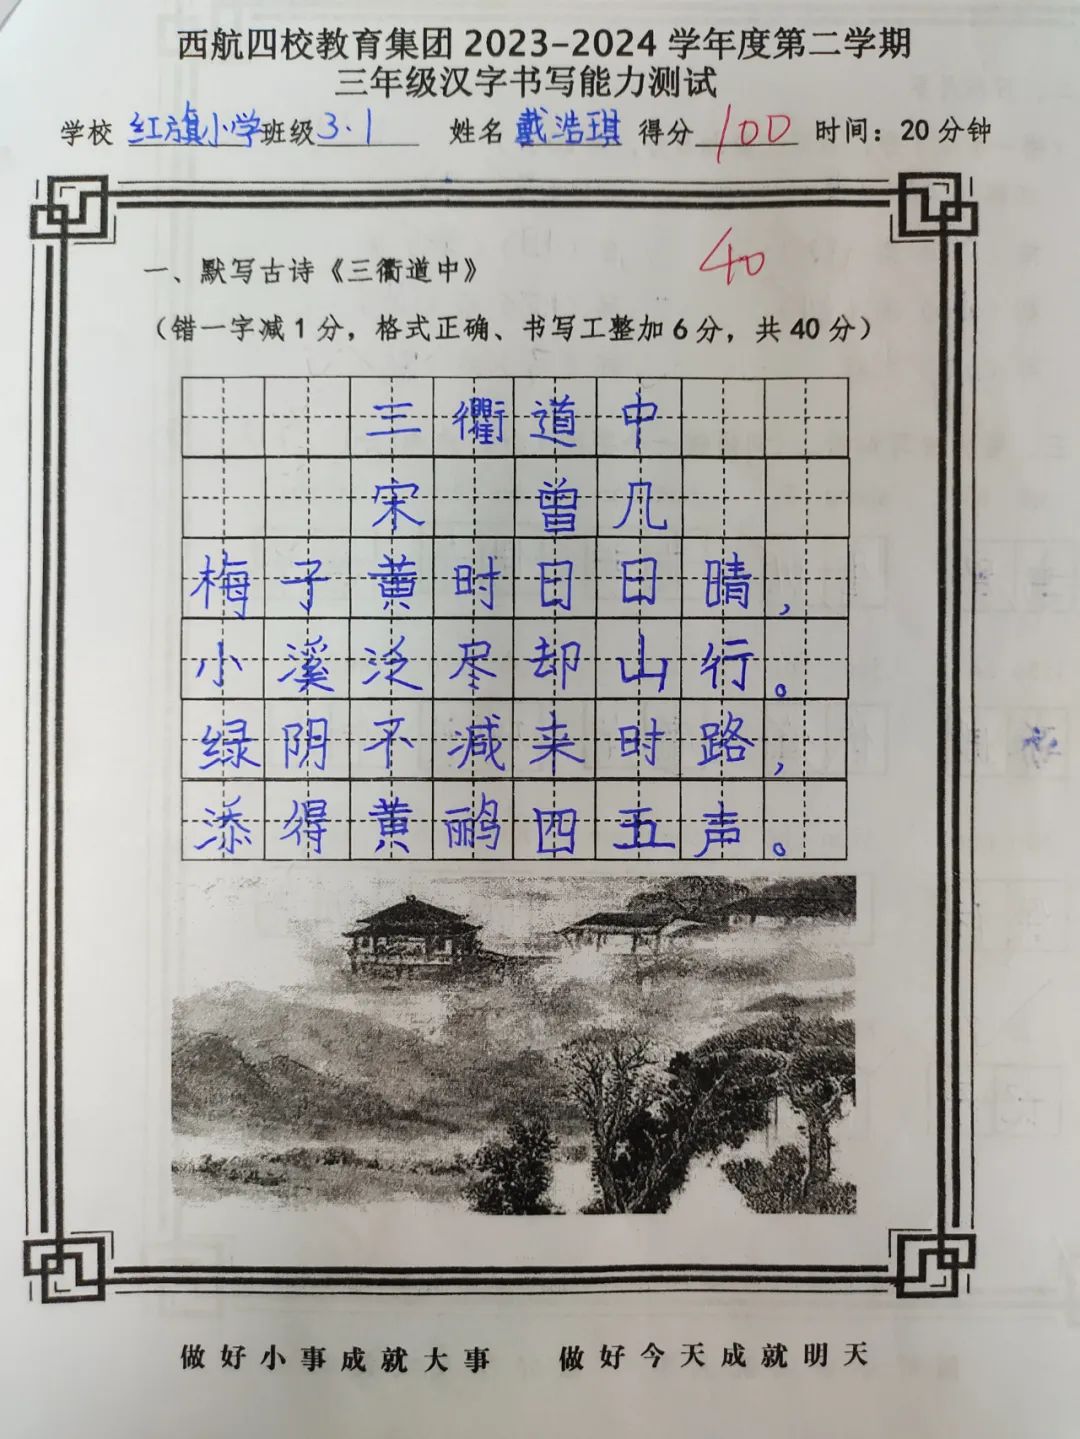 西航四校教育集团 2023-2024 学年度第二学期
三年级汉字书写能力测试
学校 红旗小学 班级 3.1 姓名 戴浩琪 得分 100 时间：20 分钟
40
一、默写古诗《三衢道中》
（错一字减 1 分，格式正确、书写工整加 6 分，共 40 分）
三衢道中
宋 曾几
梅子黄时日日晴，
小溪泛尽却山行。
绿阴不减来时路，
添得黄鹂四五声。
做好小事成就大事 做好今天成就明天